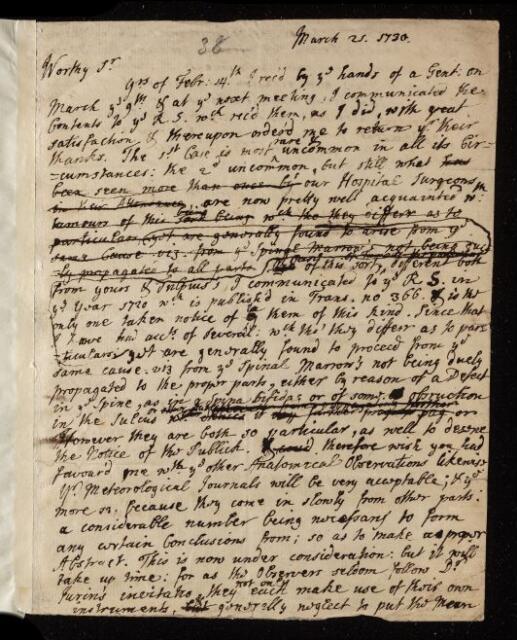 38
March 21. 1730.
Worthy Sr.
Yrs of Febr: 14th I recd by ye hands of a Gent: on
March ye 9th & at ye next meeting, I communicated the
Contents to ye R. S. wch recd them, as I did, with great
satisfaction, & thereupon orderd me to return yu their
thanks. The 1st Case is most rare & uncommon in all its Cir-
=cumstances: the 2d uncommon, but still what
been seen more than once by our Hospital Surgeons
in their Attendance, are now pretty well acquainted wth
tumours of this kind being wch tho they differ as to
particulars yet are generally found to arise from ye
same Cause viz. from ye Spinal Marrow's not being due
ly propagated to all parts of this sort, different both
from yours & Tulpius's I communicated to ye R. S. in
ye year 1720 wch is publish'd in Trans. no 366. & is the
only one taken notice of by them of this kind. Since that
I have had acctts of several: wch tho' they differ as to part
=iculars yet are generally found to proceed from ye
same cause. viz from ye Spinal Marrow's not being duely
propagated to the proper parts, either by reason of a Defect
in ye Spine, as in a Spina bifida; or of some obstruction
in the Sulcus
However they are both so particular, as well to deserve
the Notice of the Publick. I therefore wish you had
favourd me wth ye other Anatomical Observations likewise
Yr. Meteorological Journals will be very acceptable; & ye
more so: because they come in slowly from other parts:
a considerable number being necessary to form
any certain Conclusions from; so as to make a proper
Abstract. This is now under consideration: but it will
take up time: for as the Observers seldom follow Dr.
Jurins invitatio, they not only each make use of their own
instruments, but generally neglect to put the Mean